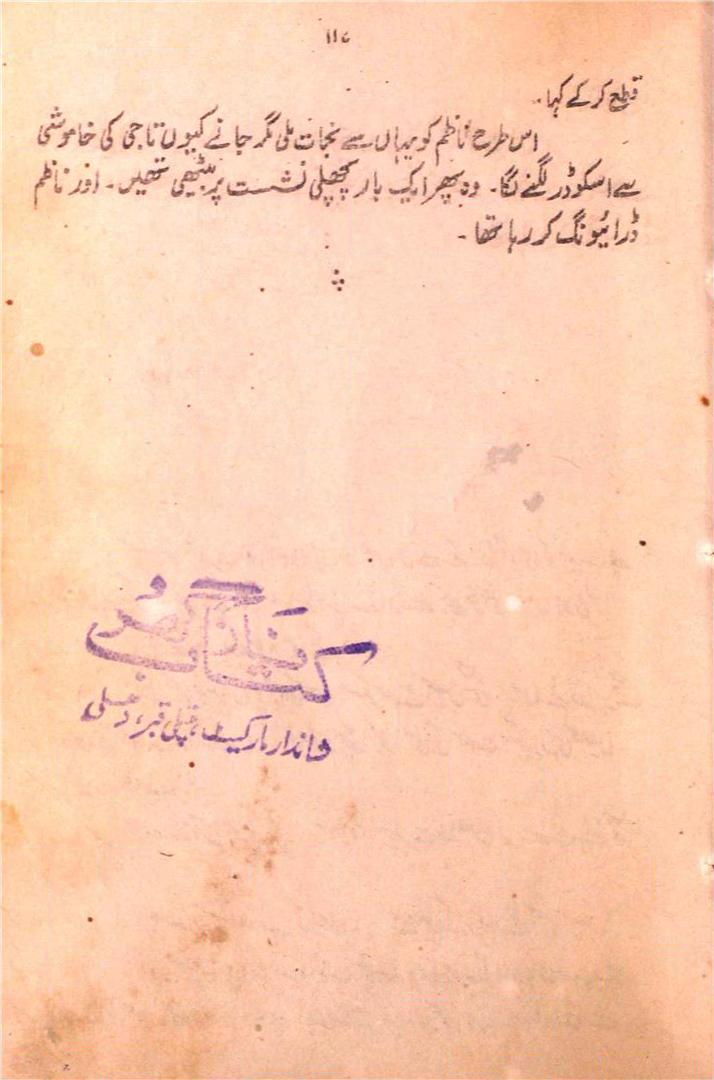 ۱۱۷
قطع کرکے کہا۔
اس طرح ناظم کو یہاں سے نجات ملی مگر جانے کیوں تاجی کی خاموشی
سے اسکو ڈر لگنے لگا۔ وہ پھر ایک بار پچھلی نشست پر بیٹھی تھیں۔ اور ناظم
ڈرائیونگ کر رہا تھا۔
نیا
کتاب گھر
شاندار مارکیٹ، چتلی قبر، دہلی